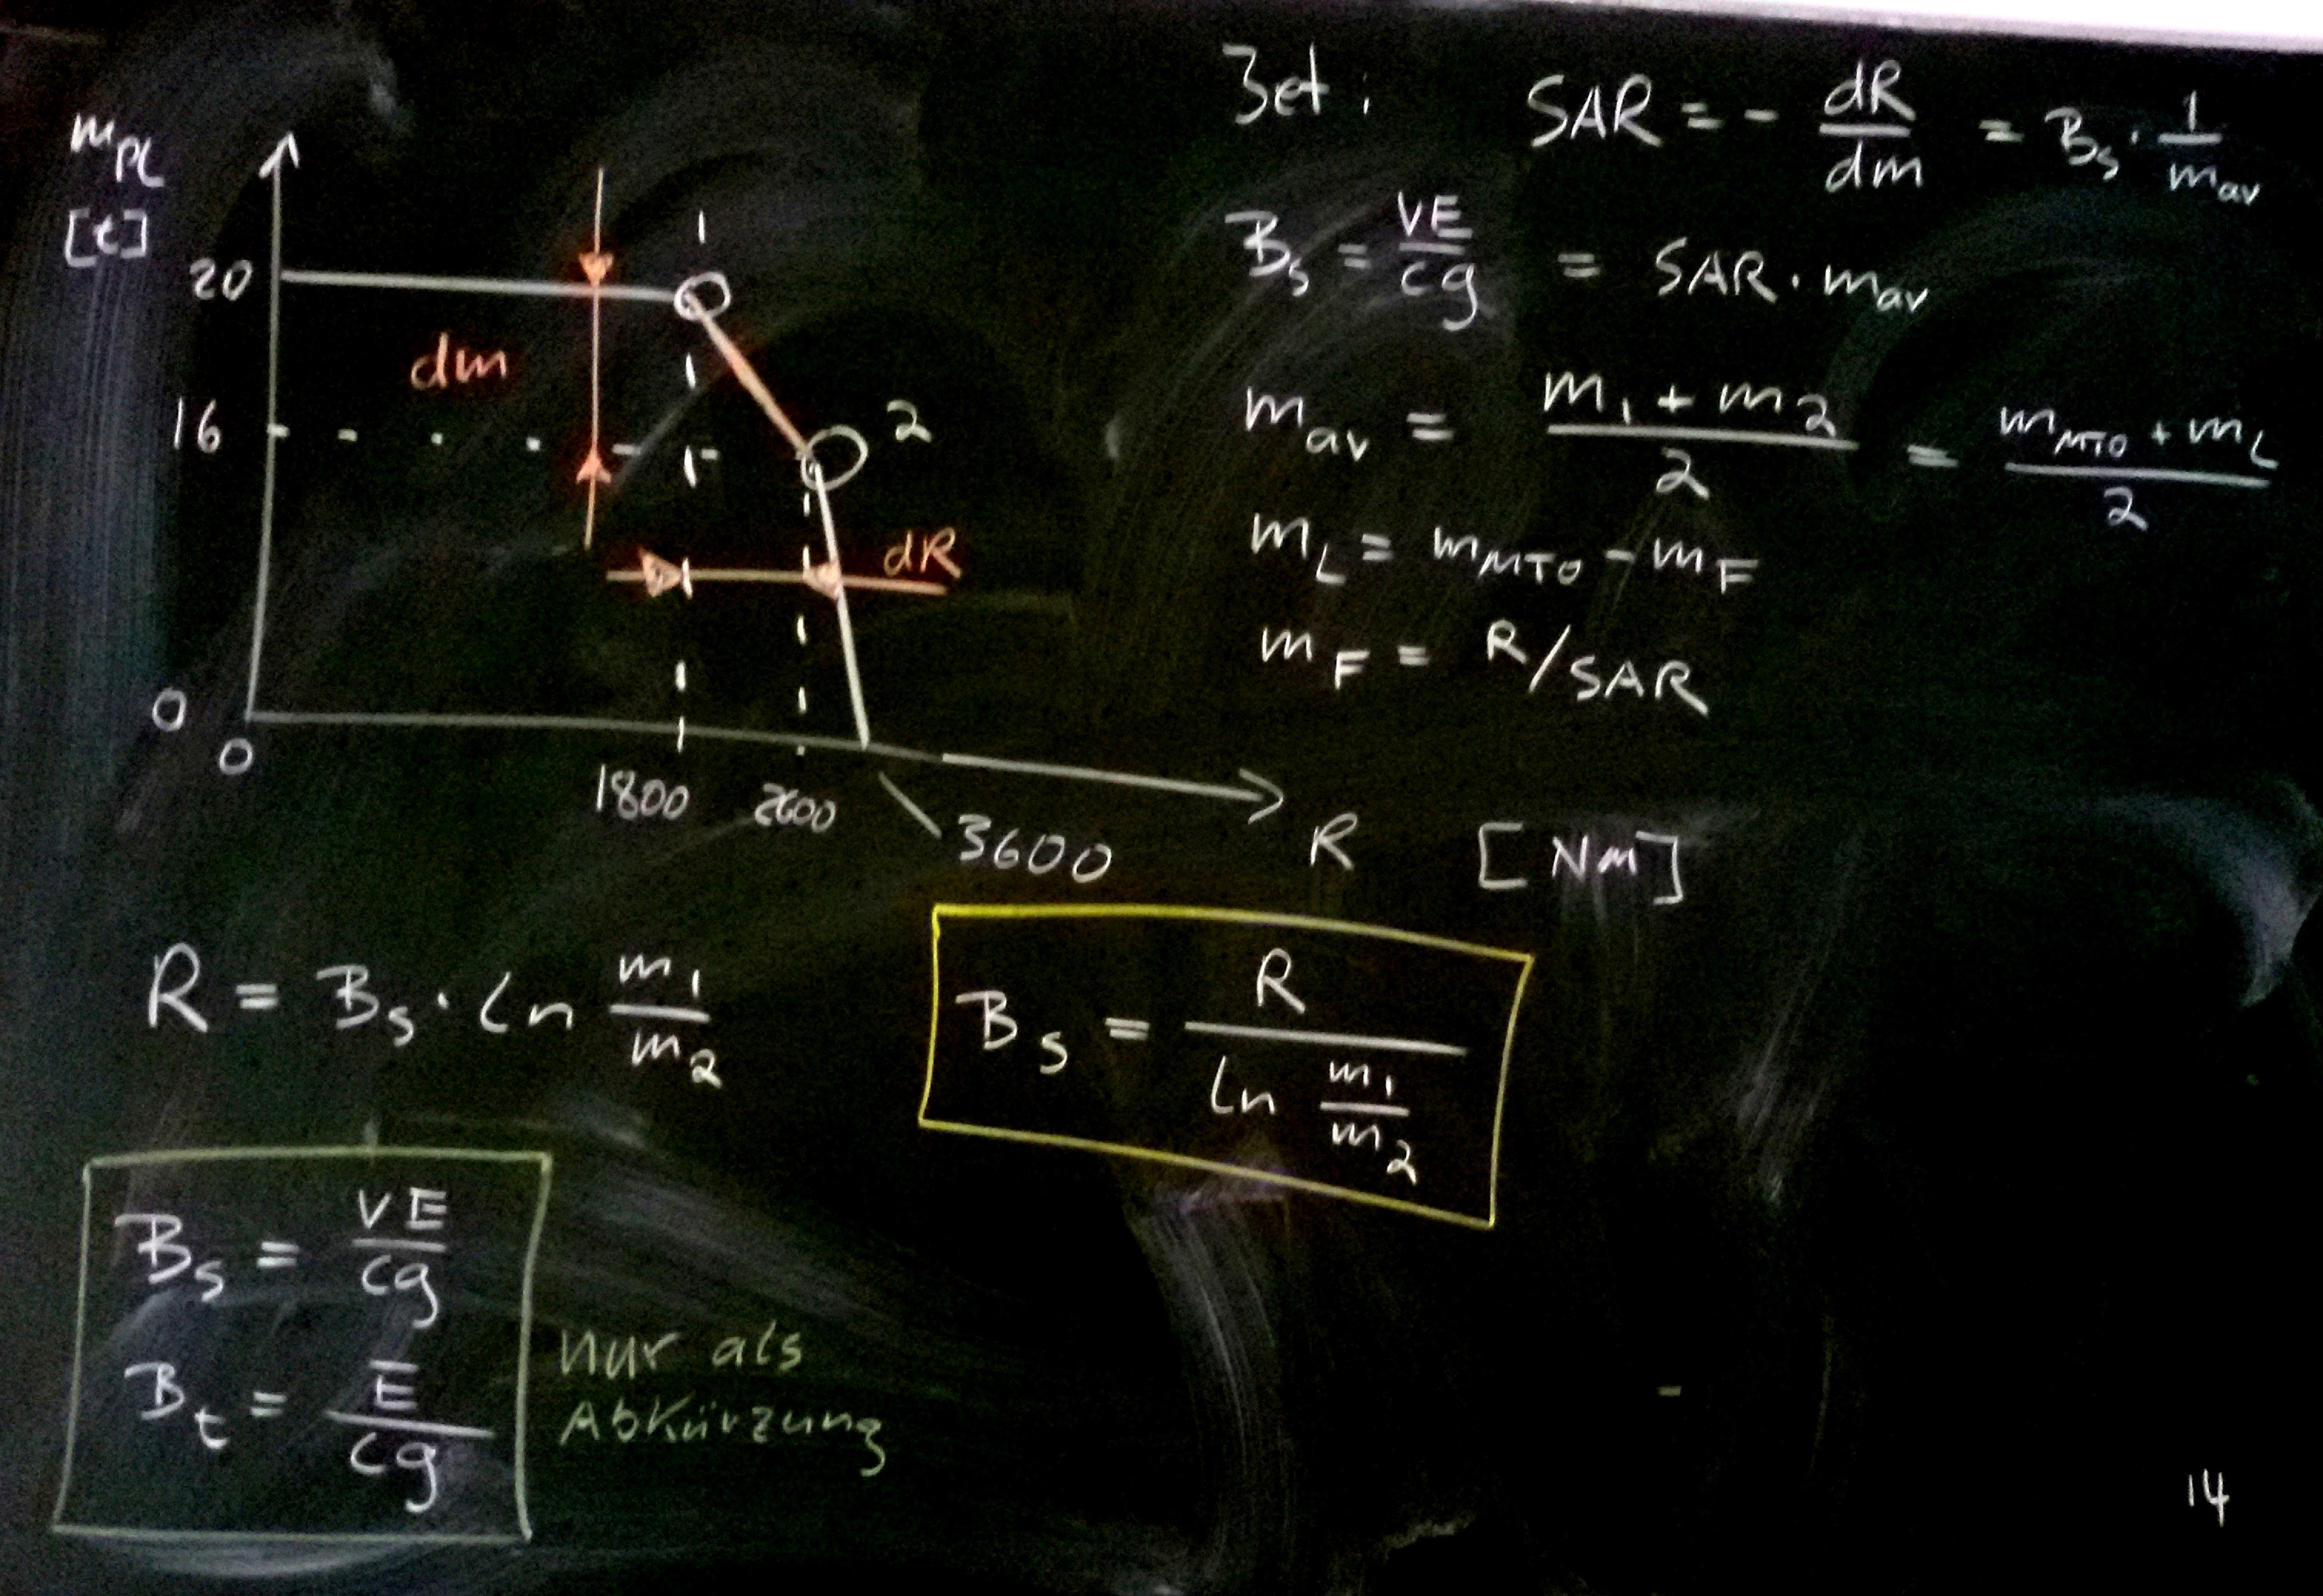 m_PL
[t]
20
16
0
0
dm
1
2
dR
1800
2600
3600
R [Nm]
Jet: SAR = - dR/dm = B_s · 1/m_av
B_s = VE/cg = SAR · m_av
m_av = (m_1 + m_2)/2 = (m_MTO + m_L)/2
m_L = m_MTO - m_F
m_F = R/SAR
R = B_s · ln m_1/m_2
B_s = R/(ln m_1/m_2)
B_s = VE/cg
B_t = E/cg
nur als
Abkürzung
14